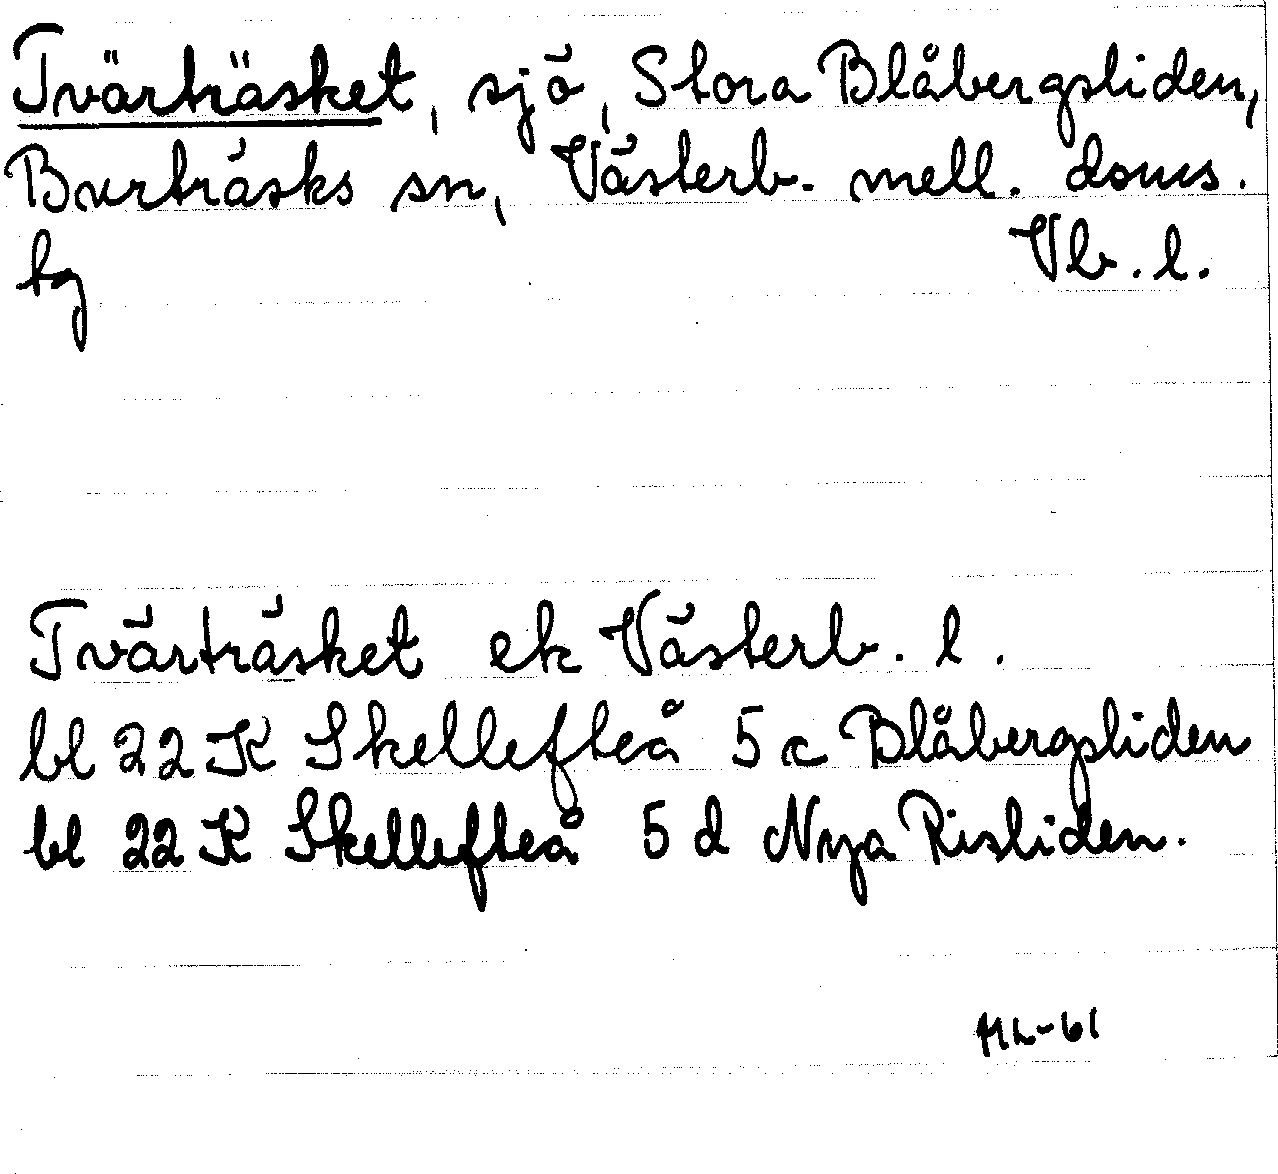 Tvärträsket, sjö, Stora Blåbergsliden,
Burträsks sn, Västerb. mell. doms.
tg Vb. l.
Tvärträsket ek Västerb. l.
bl 22 K Skellefteå 5 c Blåbergsliden
bl 22 K Skellefteå 5 d Nya Risliden.
ML-61